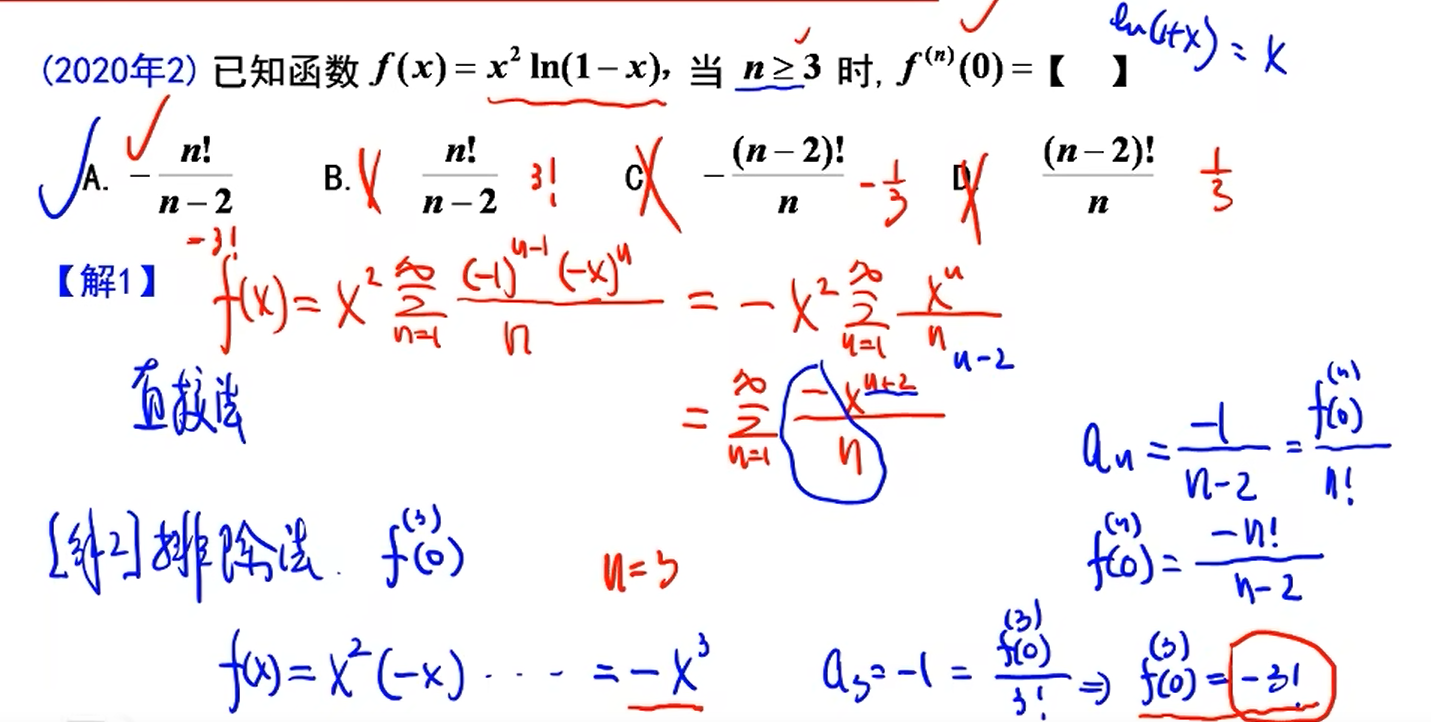 ln(1+x) = x
(2020年2) 已知函数 f(x) = x² ln(1 − x), 当 n ≥ 3 时, f⁽ⁿ⁾(0) = 【 】
A. − n!/(n − 2) B. n!/(n − 2) 3! C. − (n − 2)!/n −1/3 D. (n − 2)!/n 1/3
−3!
【解1】 f(x) = x² ∑_{n=1}^{∞} (−1)^{n−1} (−x)^n / n = − x² ∑_{n=1}^{∞} x^n / n
n−2
直接法 = ∑_{n=1}^{∞} −x^{n+2} / n
a_n = −1/(n−2) = f⁽ⁿ⁾(0)/n!
f⁽ⁿ⁾(0) = −n!/(n−2)
[解2] 排除法. f⁽³⁾(0) n=3
f(x) = x²(−x) ···· = −x³ a₃ = −1 = f⁽³⁾(0)/3! ⇒ f⁽³⁾(0) = −3!